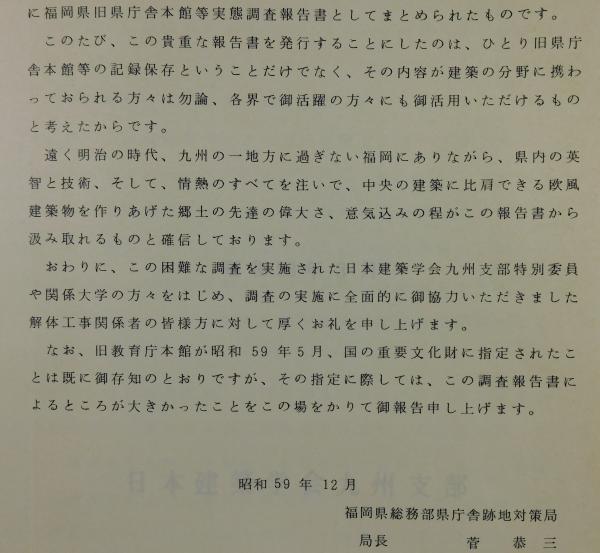 に福岡県旧県庁舎本館等実態調査報告書としてまとめられたものです。
このたび、この貴重な報告書を発行することにしたのは、ひとり旧県庁
舎本館等の記録保存ということだけでなく、その内容が建築の分野に携わ
っておられる方々は勿論、各界で御活躍の方々にも御活用いただけるもの
と考えたからです。
遠く明治の時代、九州の一地方に過ぎない福岡にありながら、県内の英
智と技術、そして、情熱のすべてを注いで、中央の建築に比肩できる欧風
建築物を作りあげた郷土の先達の偉大さ、意気込みの程がこの報告書から
汲み取れるものと確信しております。
おわりに、この困難な調査を実施された日本建築学会九州支部特別委員
や関係大学の方々をはじめ、調査の実施に全面的に御協力いただきました
解体工事関係者の皆様方に対して厚くお礼を申し上げます。
なお、旧教育庁本館が昭和 59 年 5 月、国の重要文化財に指定されたこ
とは既に御存知のとおりですが、その指定に際しては、この調査報告書に
よるところが大きかったことをこの場をかりて御報告申し上げます。
日本建築学会九州支部
昭和 59 年 12 月
福岡県総務部県庁舎跡地対策局
局長 菅 恭 三